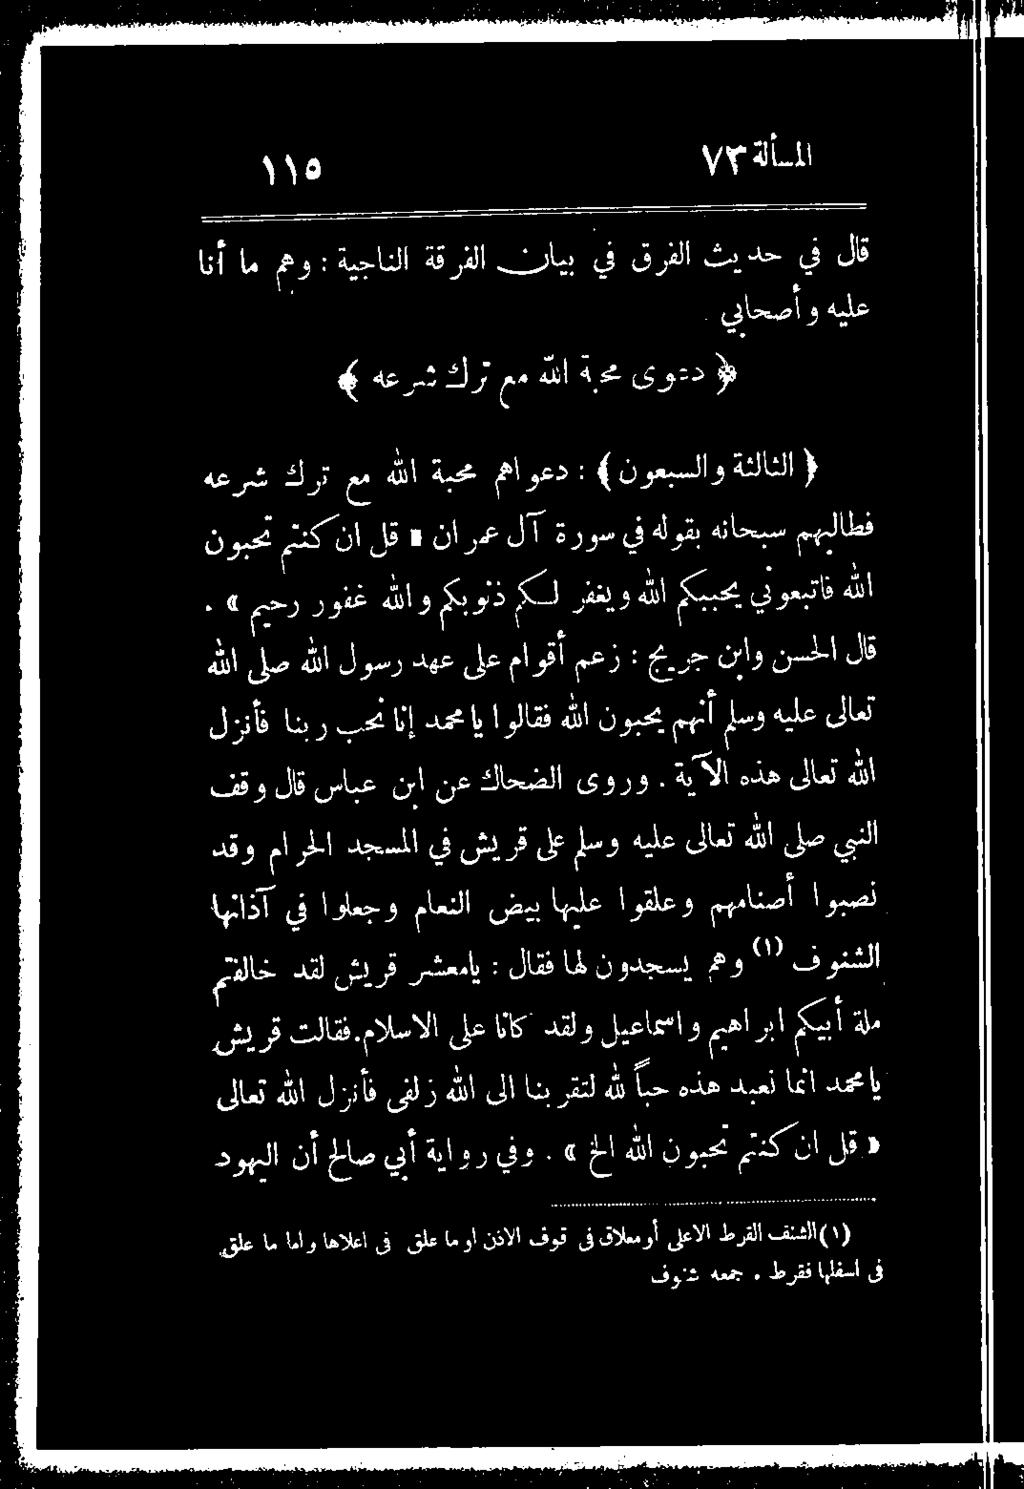 المسألة ٧٣ ١١٥
قال في حديث الفرق في بيان الفرقة الناجية : وهم ما أنا
عليه وأصحابي .
﴿ دعوى محبة الله مع ترك شرعه ﴾
﴿ الثالثة والسبعون ﴾ : دعواهم محبة الله مع ترك شرعه
فطالبهم سبحانه بقوله في سورة آل عمران « قل ان كنتم تحبون
الله فاتبعوني يحببكم الله ويغفر لكم ذنوبكم والله غفور رحيم » .
قال الحسن وابن جريج : زعم أقوام على عهد رسول الله صلى الله
تعالى عليه وسلم أنهم يحبون الله فقالوا يا محمد إنا نحب ربنا فأنزل
الله تعالى هذه الآية . وروى الضحاك عن ابن عباس قال وقف
النبي صلى الله تعالى عليه وسلم على قريش في المسجد الحرام وقد
نصبوا أصنامهم وعلقوا عليها بيض النعام وجعلوا في آذانها
الشنوف (١) وهم يسجدون لها فقال : يامعشر قريش لقد خالفتم
ملة أبيكم ابراهيم واسماعيل ولقد كانا على الاسلام. فقالت قريش
يا محمد انما نعبد هذه حباً لله لتقربنا الى الله زلفى فأنزل الله تعالى
« قل ان كنتم تحبون الله الخ » . وفي رواية أبي صالح أن اليهود
(١) الشنف القرط الاعلى أو معلاق في قوف الاذن او ما علق في اعلاها واما ما علق
في اسفلها فقرط . جمعه شنوف